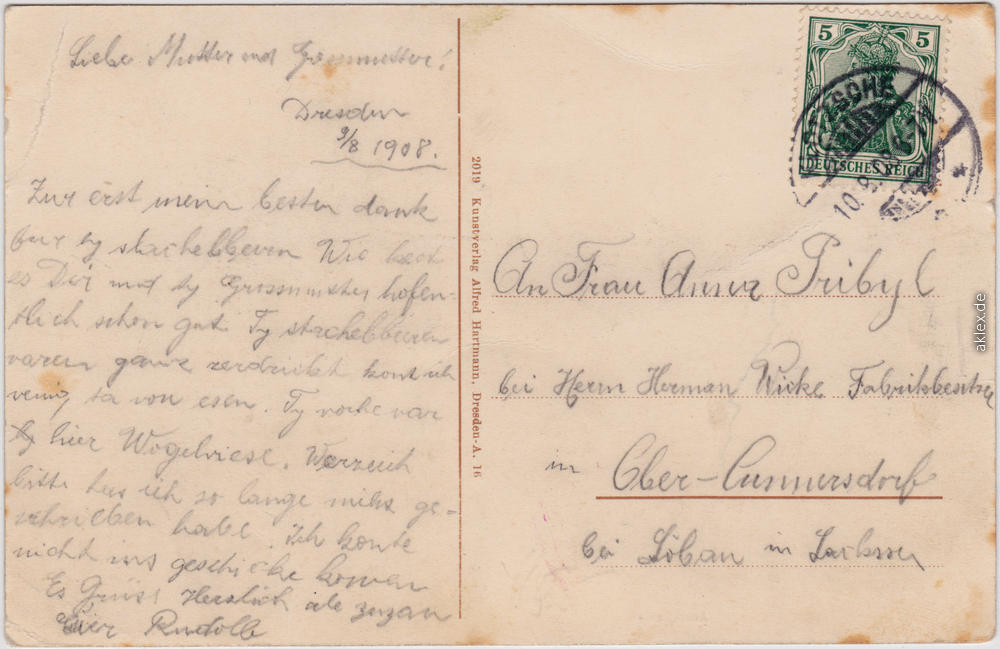 Liebe Mutter und Grossmutter!
Dresden
9/8 1908.
Zur erst mein besten dank
für ty stachelbeern Wie geht
es Dir und ty Grossmutter hofen-
tlich schon gut. Ty stachelbeeren
waren ganz zerdrückt konnt ich
wenig da von esen. Ty woche war
hier Wogelwiese. Werzeich
bitte das ich so lange nichts ge-
schrieben habe. Ich konte
nicht ins geschicke komen
Es Grüst Herzlich ale zuzan
Euer Rudolf
2019 Kunstverlag Alfred Hartmann, Dresden-A. 16
5 5
DEUTSCHES REICH
10.8.
An Frau Anna Pribyl
bei Herrn Herman Wicke Fabrikbesitzer
in Ober-Cunnersdorf
bei Löbau in Sachsen
aklex.de